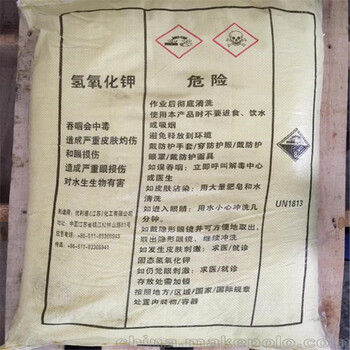 氢氧化钾
危险
吞咽会中毒
造成严重皮肤灼伤
和眼损伤
造成严重眼损伤
对水生生物有害
作业后彻底清洗
使用本产品时不要进食、饮水
或吸烟
避免释放到环境
戴防护手套/穿防护服/戴防护
眼罩/戴防护面具
如误吞咽：立即呼叫解毒中心
或医生
如皮肤沾染：用大量肥皂和水
清洗
如进入眼睛：用水小心冲洗几
分钟。
如戴隐形眼镜并可方便地取出，
取出隐形眼镜，继续冲洗
如发生皮肤刺激：求医/就诊
固态氢氧化钾
如仍觉眼刺激：求医/就诊
存放处需加锁
按照地方/区域/国家/国际规章
处置内装物/容器
制造商：优利德(江苏)化工有限公司
UN1813
china.makepolo.com